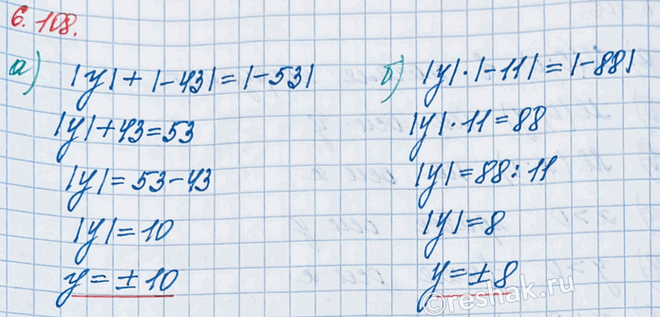 6.108.
а) |y| + |-43| = |-53|
|y| + 43 = 53
|y| = 53 - 43
|y| = 10
y = ± 10
б) |y| · |-11| = |-88|
|y| · 11 = 88
|y| = 88 : 11
|y| = 8
y = ± 8
©reshak.ru